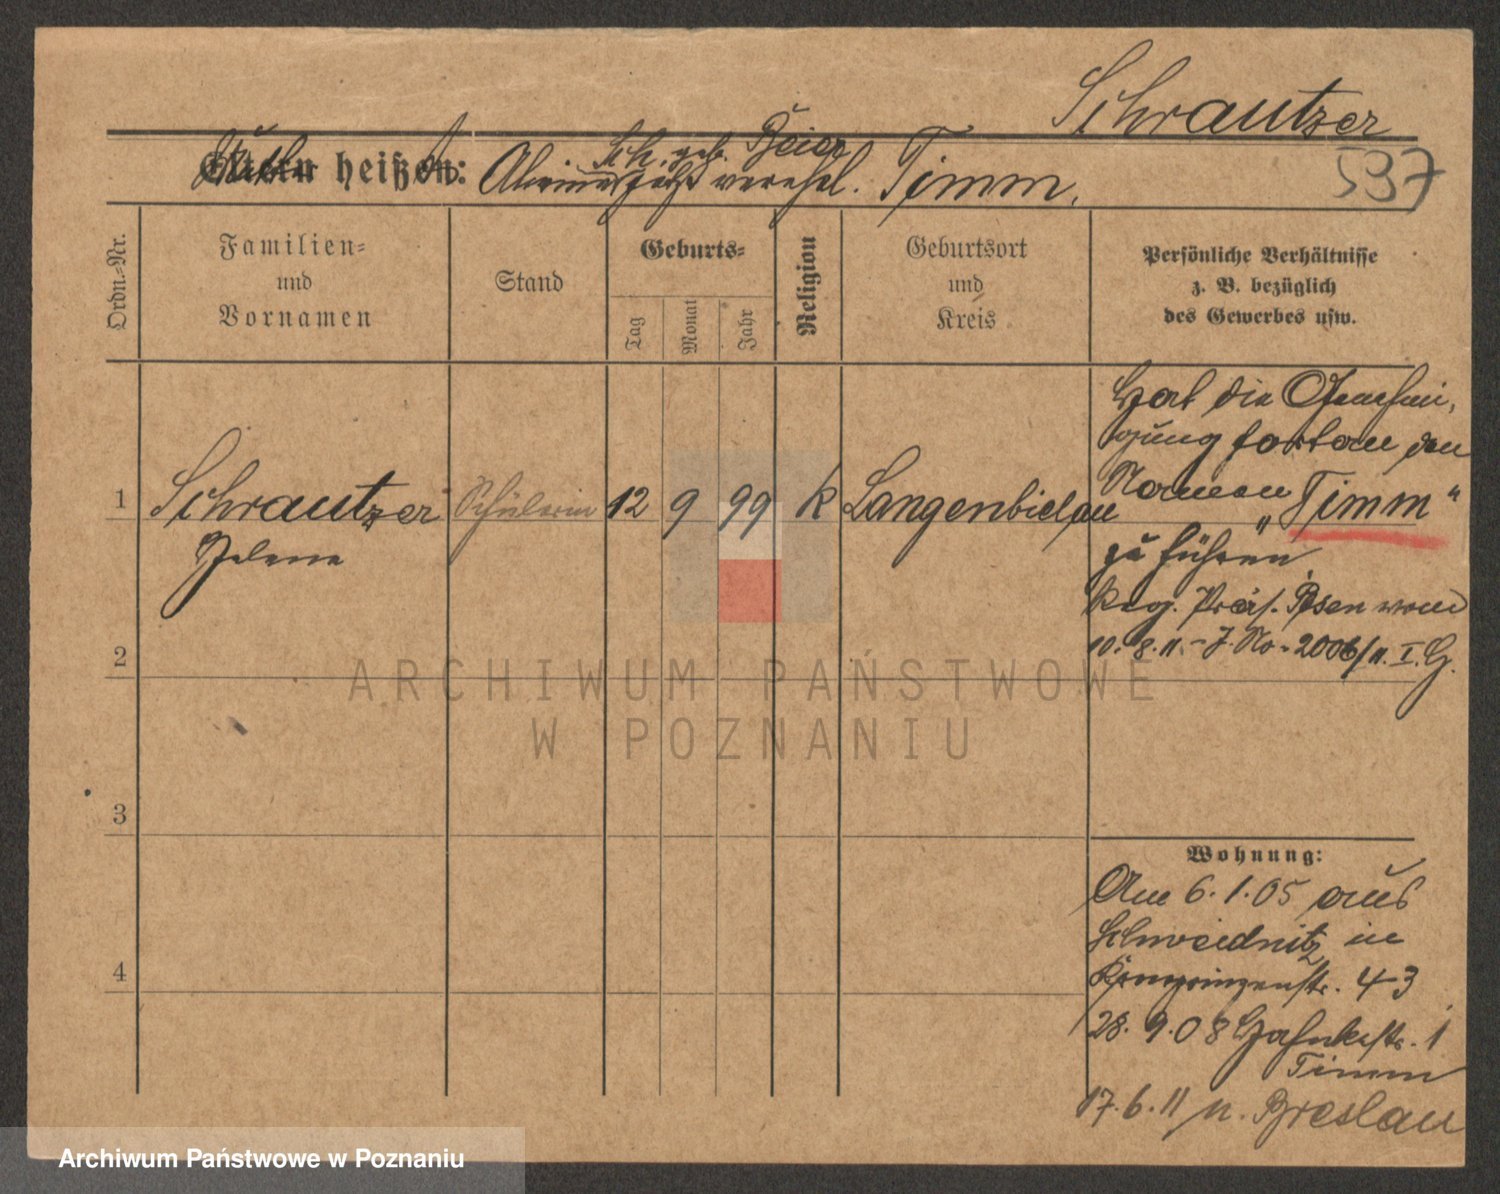 Schrautzer
537
Mutter heißt:
Sch. geb. Beier
jetzt verehel. Timm.
Ordn.-Nr.
Familien-
und
Vornamen
Stand
Geburts-
Tag
Monat
Jahr
Religion
Geburtsort
und
Kreis
Persönliche Verhältnisse
z. B. bezüglich
des Gewerbes usw.
1
Schrautzer
Helene
Schülerin
12
9
99
k
Langenbielau
Hat die Genehmi-
gung fortan den
Namen
„Timm“
zu führen.
Reg. Präs. Posen vom
10.8.11.- J. No. 2006/11. I. G.
2
3
4
Wohnung:
Am 6.1.05 aus
Schweidnitz in
Kronprinzenstr. 43
28.9.08 Hahnkestr. 1
Timm
17.6.11 n. Breslau
ARCHIWUM PAŃSTWOWE
W POZNANIU
Archiwum Państwowe w Poznaniu